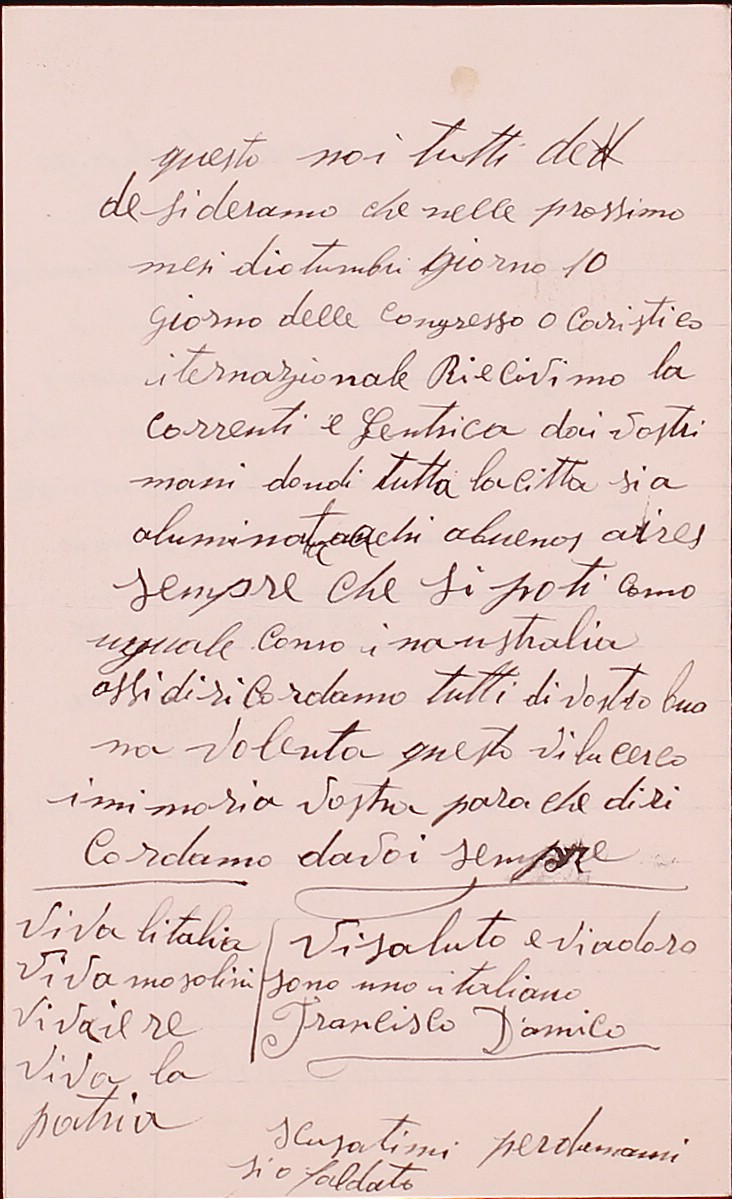 questo noi tutti ded
desideramo che nelle prossimo
mesi diotumbri giorno 10
giorno delle Congresso o Caristico
iternazionale Riecivimo la
Correnti e lentrica dai vostri
mani dondi tutta lacitta sia
aluminata anchi abuenos aires
sempre che si poti como
uguale como inaustralia
assi diricordamo tutti di vostro bua
na volenta questo vilucerco
imimoria vostra para che diri
Cordamo davoi sempre
viva litalia
viva mosolini
viva ie re
viva la
patria
visaluto e viadoro
sono uno italiano
Francisco D'amico
scusatimi perdunami
si o faldato